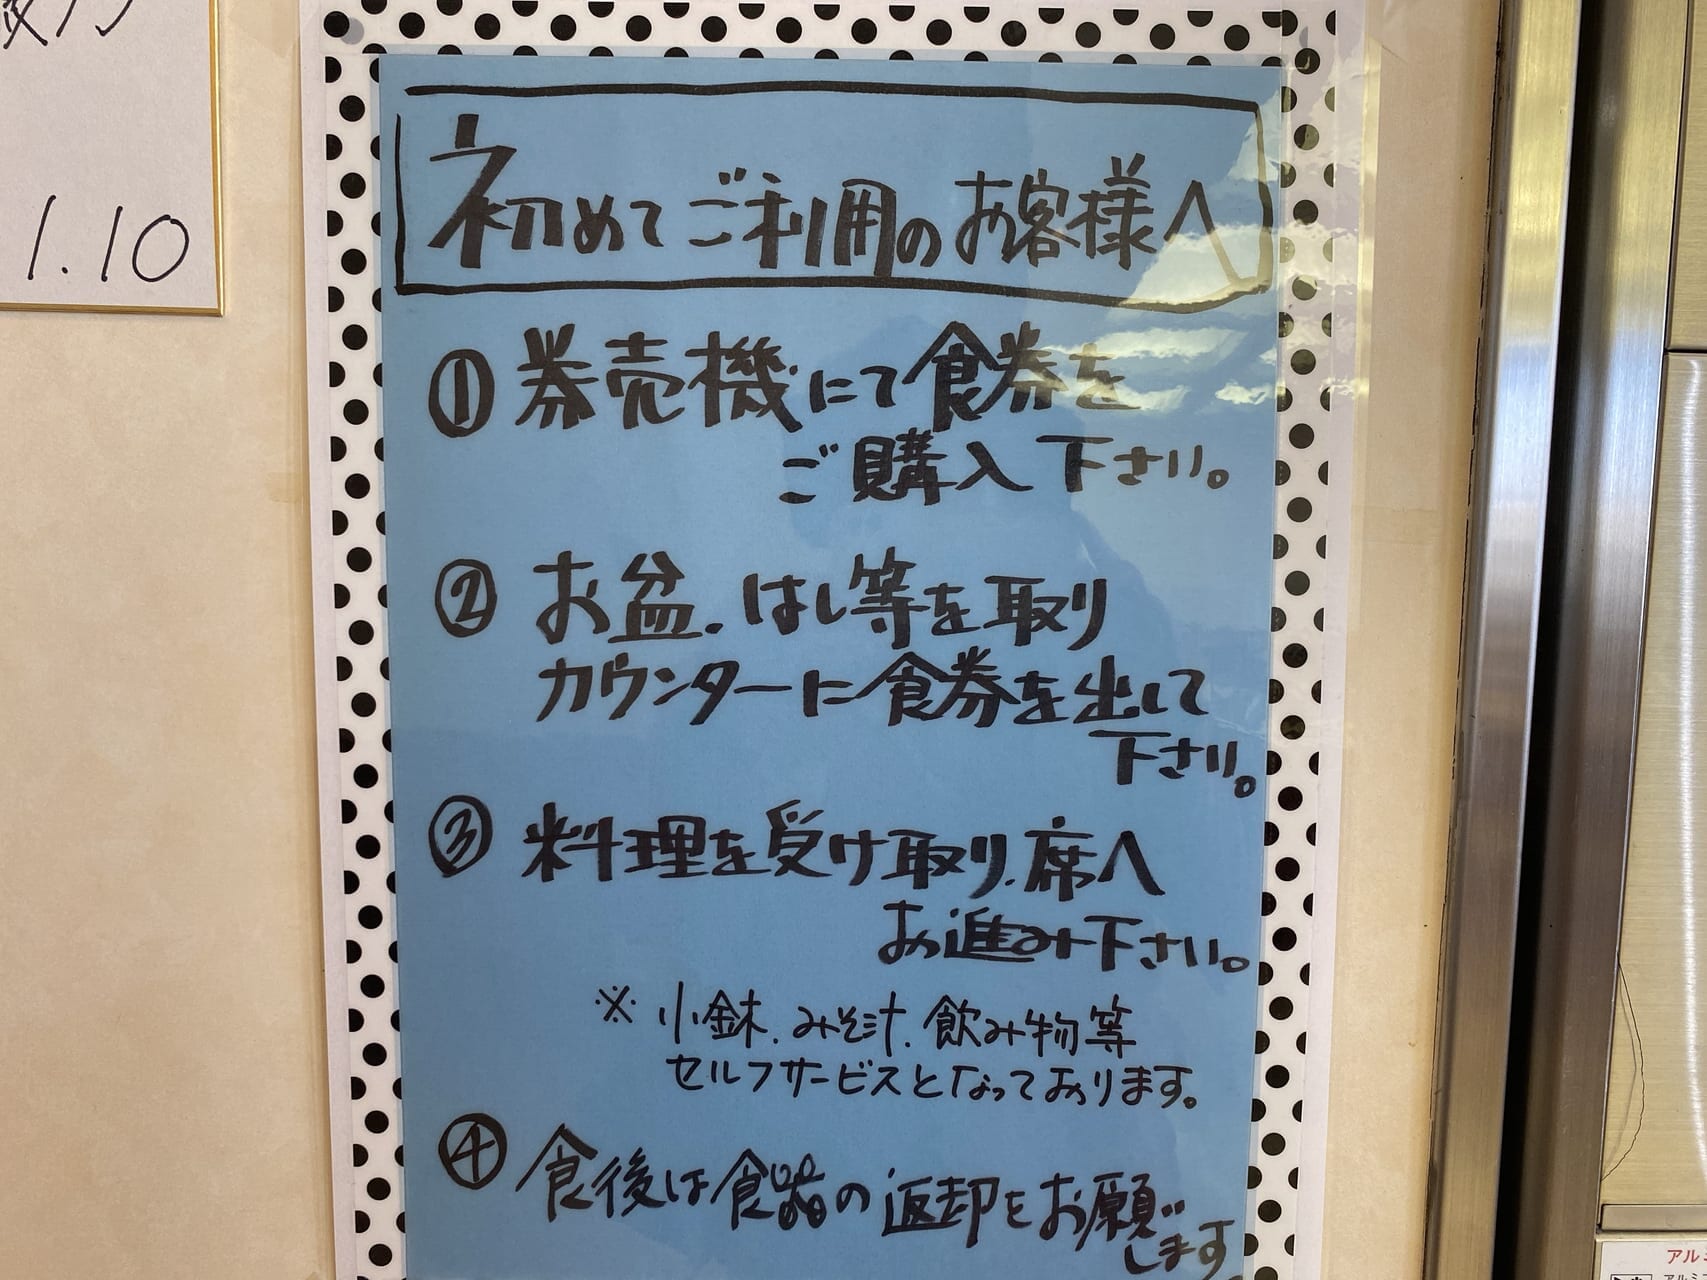 1.10
初めてご利用のお客様へ
①券売機にて食券を
ご購入下さい。
②お盆、はし等を取り
カウンターに食券を出して
下さい。
③料理を受け取り、席へ
お進み下さい。
※小鉢、みそ汁、飲み物等
セルフサービスとなっております。
④食後は食器の返却をお願い
します